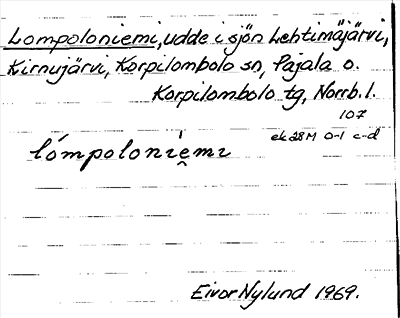 Lompoloniemi, udde i sjön Lehtimäjärvi,
Kirnujärvi, Korpilombolo sn, Pajala o.
Korpilombolo tg, Norrb. l.
107
ek 28M 0-1 c-d
lómpoloni̯emi
Eivor Nylund 1969.